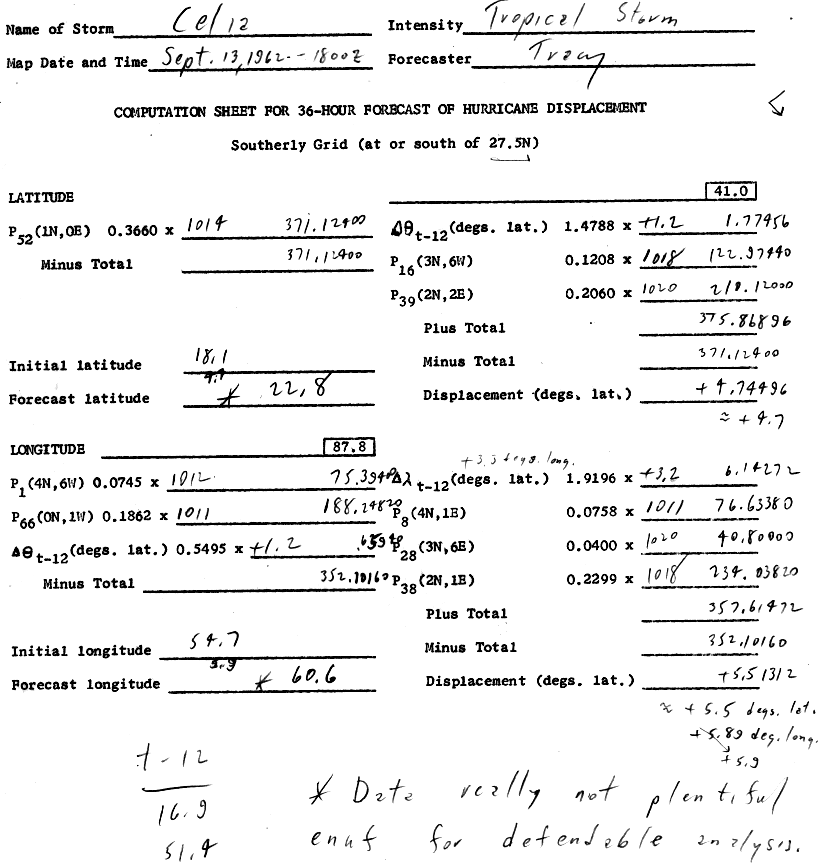 Name of Storm Celia Intensity Tropical Storm
Map Date and Time Sept. 13, 1962 - 1800Z Forecaster Tracy
COMPUTATION SHEET FOR 36-HOUR FORECAST OF HURRICANE DISPLACEMENT
Southerly Grid (at or south of 27.5N)
LATITUDE 41.0
P52(1N,0E) 0.3660 x 1014 371.12400 Δθt-12(degs. lat.) 1.4788 x +1.2 1.77456
Minus Total 371.12400 P16(3N,6W) 0.1208 x 1018 122.97440
P39(2N,2E) 0.2060 x 1020 210.12000
Plus Total 375.86896
Initial latitude 18.1 Minus Total 371.12400
4.7
Forecast latitude * 22.8 Displacement (degs. lat.) + 4.74496
≈ + 4.7
LONGITUDE 87.8
+3.3 degs. long.
P1(4N,6W) 0.0745 x 1012 75.3940 Δλt-12(degs. long.) 1.9196 x +3.2 6.14272
P66(0N,1W) 0.1862 x 1011 188.24820 P8(4N,1E) 0.0758 x 1011 76.63380
Δθt-12(degs. lat.) 0.5495 x +1.2 .65940 P28(3N,6E) 0.0400 x 1020 40.80000
Minus Total 352.10160 P38(2N,1E) 0.2299 x 1018 234.03820
Plus Total 357.61472
Initial longitude 54.7 Minus Total 352.10160
5.9
Forecast longitude * 60.6 Displacement (degs. lat.) +5.51312
≈ + 5.5 degs. lat.
+ 5.89 deg. long.
+5.9
t-12
16.9
51.4
* Data really not plentiful
enuf for defendable analysis.